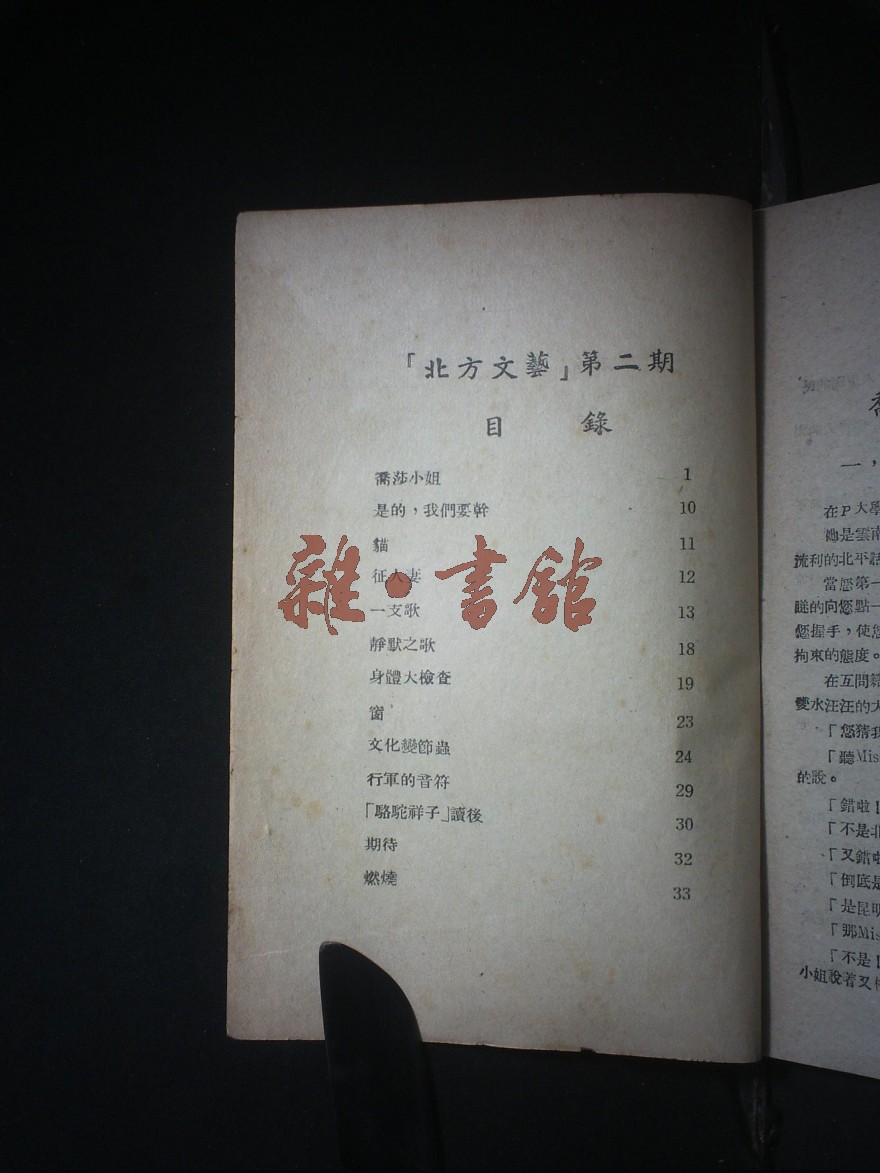 「北方文藝」第二期
目 錄
喬莎小姐 1
是的，我們要幹 10
貓 11
征人妻 12
一支歌 13
靜默之歌 18
身體大檢查 19
窗 23
文化變節蟲 24
行軍的音符 29
「駱駝祥子」讀後 30
期待 32
燃燒 33
雜·書館
一，
在P大學
她是雲南
流利的北平話
當您第一
的向您點一
您握手，使您
拘束的態度。
在互問
雙水汪汪的大
「您猜我
「聽Mis
的說。
「錯啦！
「不是北
「又錯啦
「倒底是
「是昆明
「那Mis
「不是！
小姐說着又